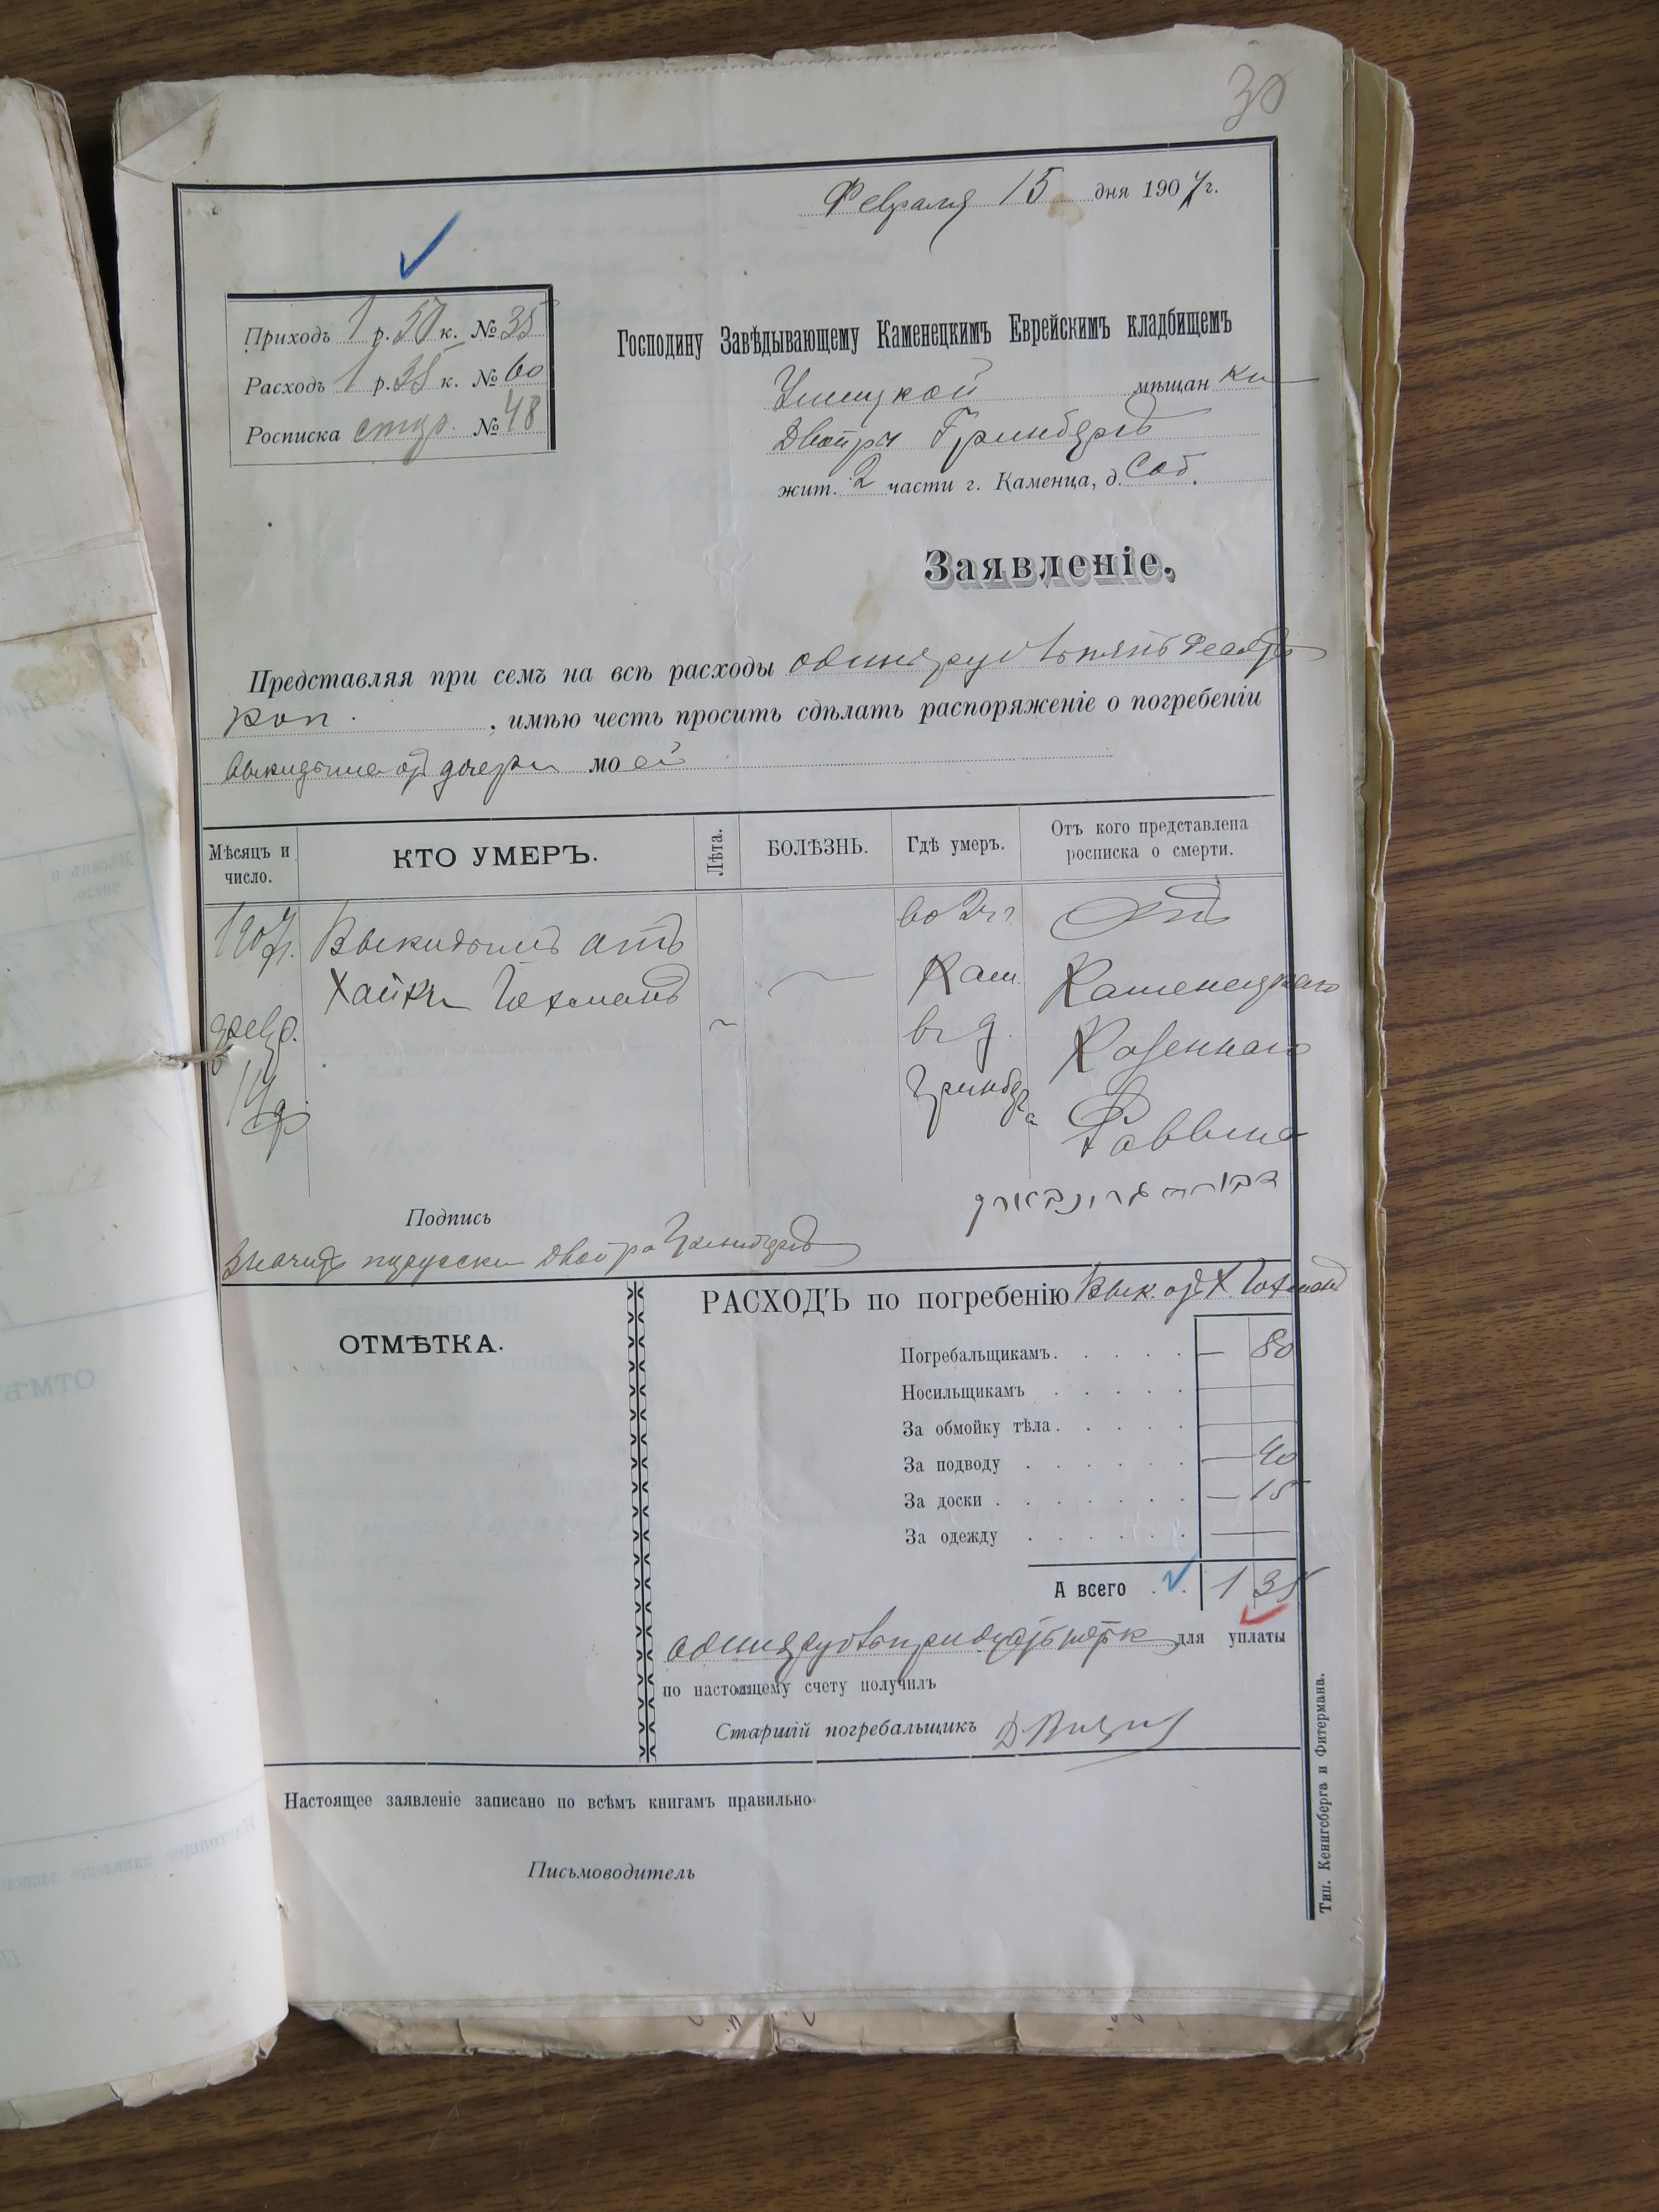 30
Февраля 15 дня 1907 г.
Приходъ 1 р. 50 к. № 35
Расходъ 1 р. 35 к. № 60
Росписка № 48
Господину Завѣдывающему Каменецкимъ Еврейскимъ кладбищемъ
Ушицкой мѣщанки
Двойры Гринбергъ
жит. 2 части г. Каменца, д. Соб.
Заявленіе.
Представляя при семъ на всѣ расходы одинъ руб пятьдесятъ
коп. , имѣю честь просить сдѣлать распоряженіе о погребеніи
выкидыша отъ дочери моей
Мѣсяцъ и число. КТО УМЕРЪ. Лѣта. БОЛѢЗНЬ. Гдѣ умеръ. Отъ кого представлена росписка о смерти.
1907 г. Выкидышъ отъ во 2 ч. Отъ
Хайки Гохманъ Кам. Каменецкаго
февр. въ д. Казеннаго
14 д. Гринберга Раввина
Подпись
Значитъ порусски Двойра Гринбергъ
РАСХОДЪ по погребенію Вык. отъ Х. Гохманъ
ОТМѢТКА.
Погребальщикамъ. . . . . — 80
Носильщикамъ . . . . . —
За обмойку тѣла . . . . . —
За подводу . . . . . . — 40
За доски . . . . . . . — 15
За одежду . . . . . . —
А всего . . 1 35
одинъ руб тридцать пять к для уплаты
по настоящему счету получилъ
Старшій погребальщикъ
Настоящее заявленіе записано по всѣмъ книгамъ правильно
Письмоводитель
Тип. Кенигсберга и Фитермана.